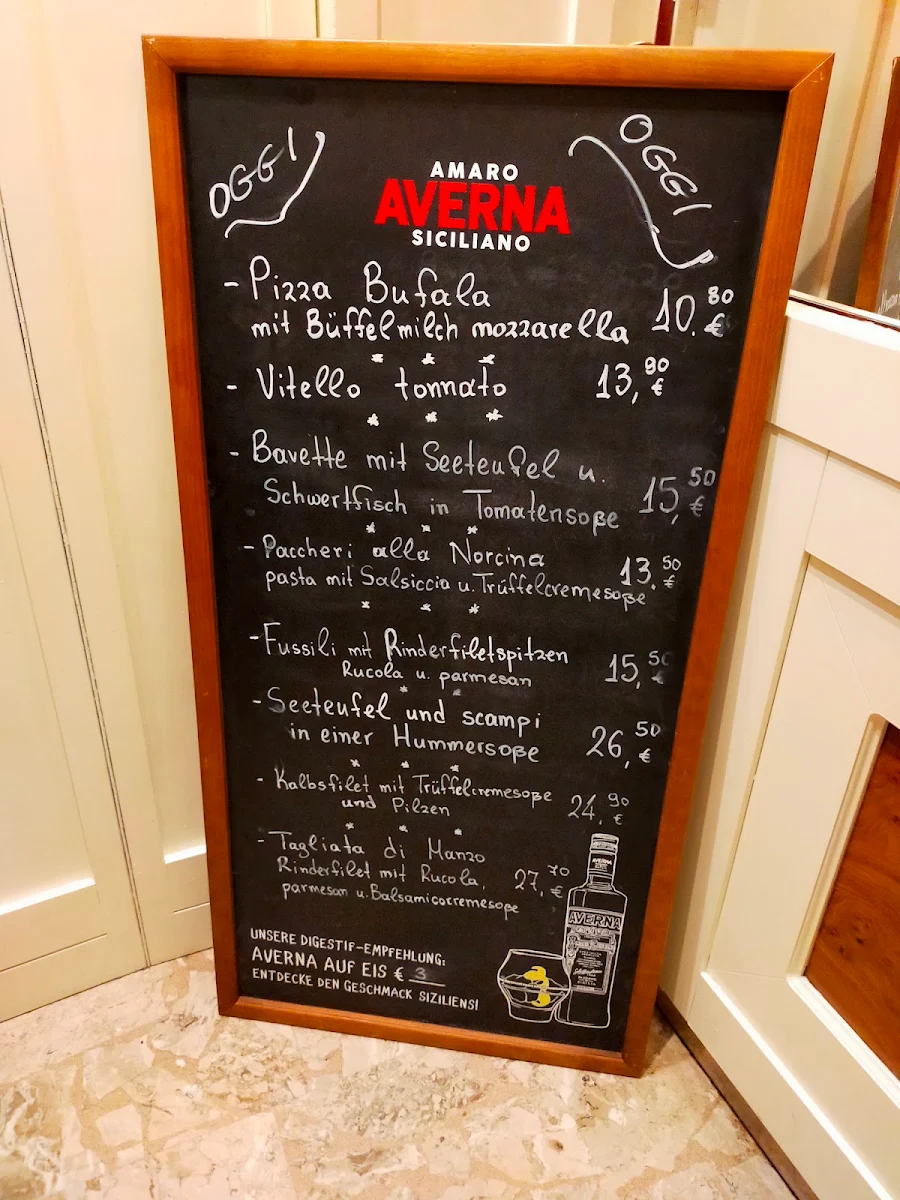 OGGI
OGGI
AMARO
AVERNA
SICILIANO
- Pizza Bufala
mit Büffelmilch mozzarella 10.80 €
* * *
- Vitello tonnato 13,90 €
* * *
- Bavette mit Seeteufel u.
Schwertfisch in Tomatensoße 15,50 €
* * *
- Paccheri alla Norcina
pasta mit Salsiccia u. Trüffelcremesoße 13.50 €
* * *
- Fussili mit Rinderfiletspitzen
Rucola u. parmesan 15,50 €
* *
- Seeteufel und scampi
in einer Hummersoße 26,50 €
* * *
- Kalbsfilet mit Trüffelcremesoße
und Pilzen 24,90 €
* * *
- Tagliata di Manzo
Rinderfilet mit Rucola, 27,70 €
parmesan u. Balsamicocremesoße
UNSERE DIGESTIF-EMPFEHLUNG:
AVERNA AUF EIS € 3
ENTDECKE DEN GESCHMACK SIZILIENS!
AVERNA
AVERNA